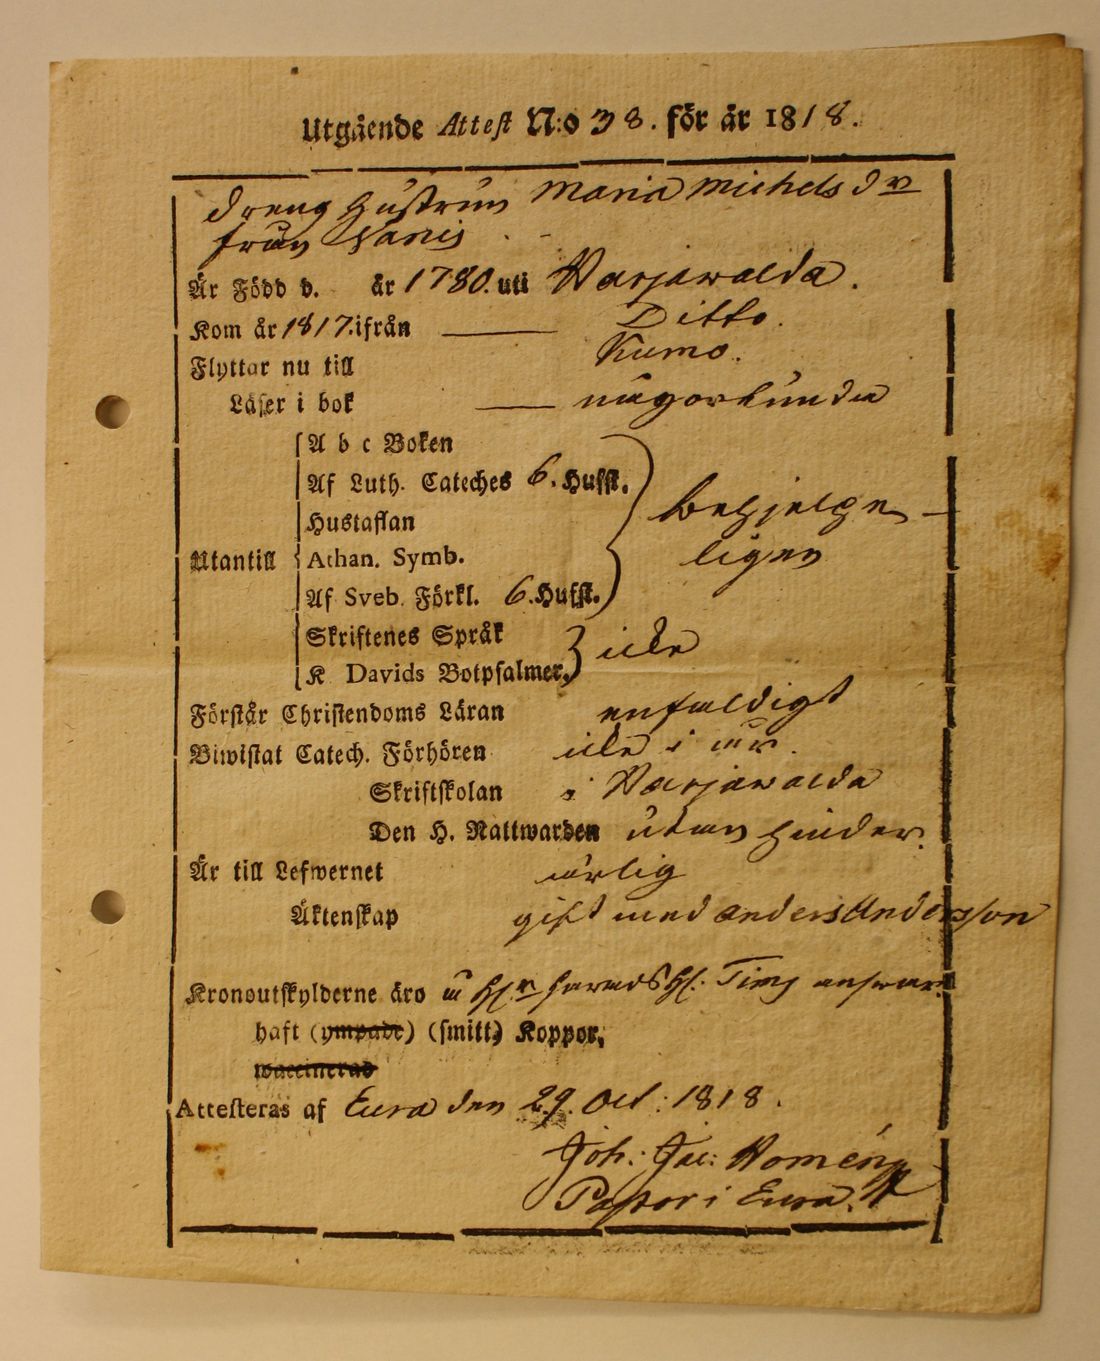 Utgående Attest N:o 38. för år 1818.
dreng Hustrun Maria Michelsdr
från
Är Född d. år 1780. uti Harjawalda.
Kom år 1817. ifrån — Ditto.
Flyttar nu till Kumo.
Läser i bok — någorlunda
A b c Boken
Af Luth. Cateches 6. Hufst.
Hustaflan
behjelpe-
Utantill Athan. Symb.
ligen
Af Sveb. Förkl. 6. Hufst.
Skriftenes Språk
icke
K Davids Botpsalmer,
Förstår Christendoms Läran enfaldigt
Biwistat Catech. Förhören icke i år.
Skriftskolan i Harjawalda
Den H. Nattwarden utan hinder.
Är till Lefwernet ärlig
Äktenskap gift med Anders Andersson
Kronoutskylderne äro å answar.
haft (ympade) (smitt) Koppor,
waccinerad
Attesteras af Eura den 29. Oct: 1818.
Joh: Jac:
Pastor i Eura.